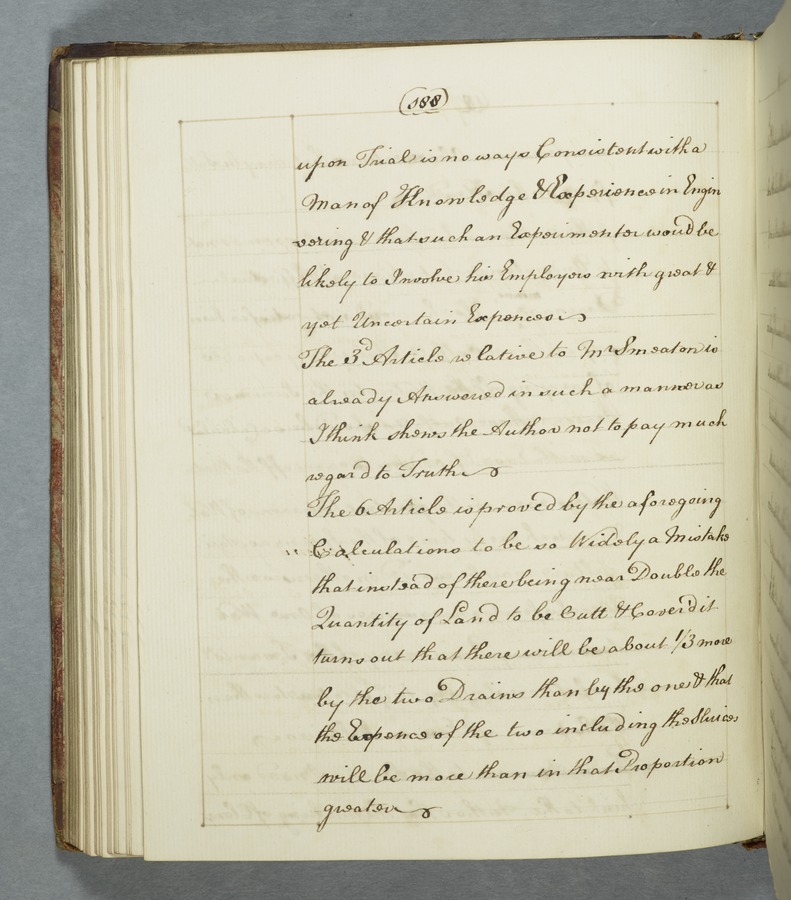 188
upon Trial is no ways Consistent with a
Man of Knowledge & Experience in Engin
eering & that such an Experimenter would be
likely to Involve his Employers with great &
yet Uncertain Expences
The 3d Article relative to Mr Smeaton is
already Answered in such a manner as
I think shews the Author not to pay much
regard to Truth
The 6 Article is proved by the aforegoing
Calculations to be so Widely a Mistake
that instead of there being near Double the
Quantity of Land to be Cutt & Cover'd it
turns out that there will be about 1/3 more
by the two Drains than by the one & that
the Expence of the two including the Sluices
will be more than in that Proportion
greater